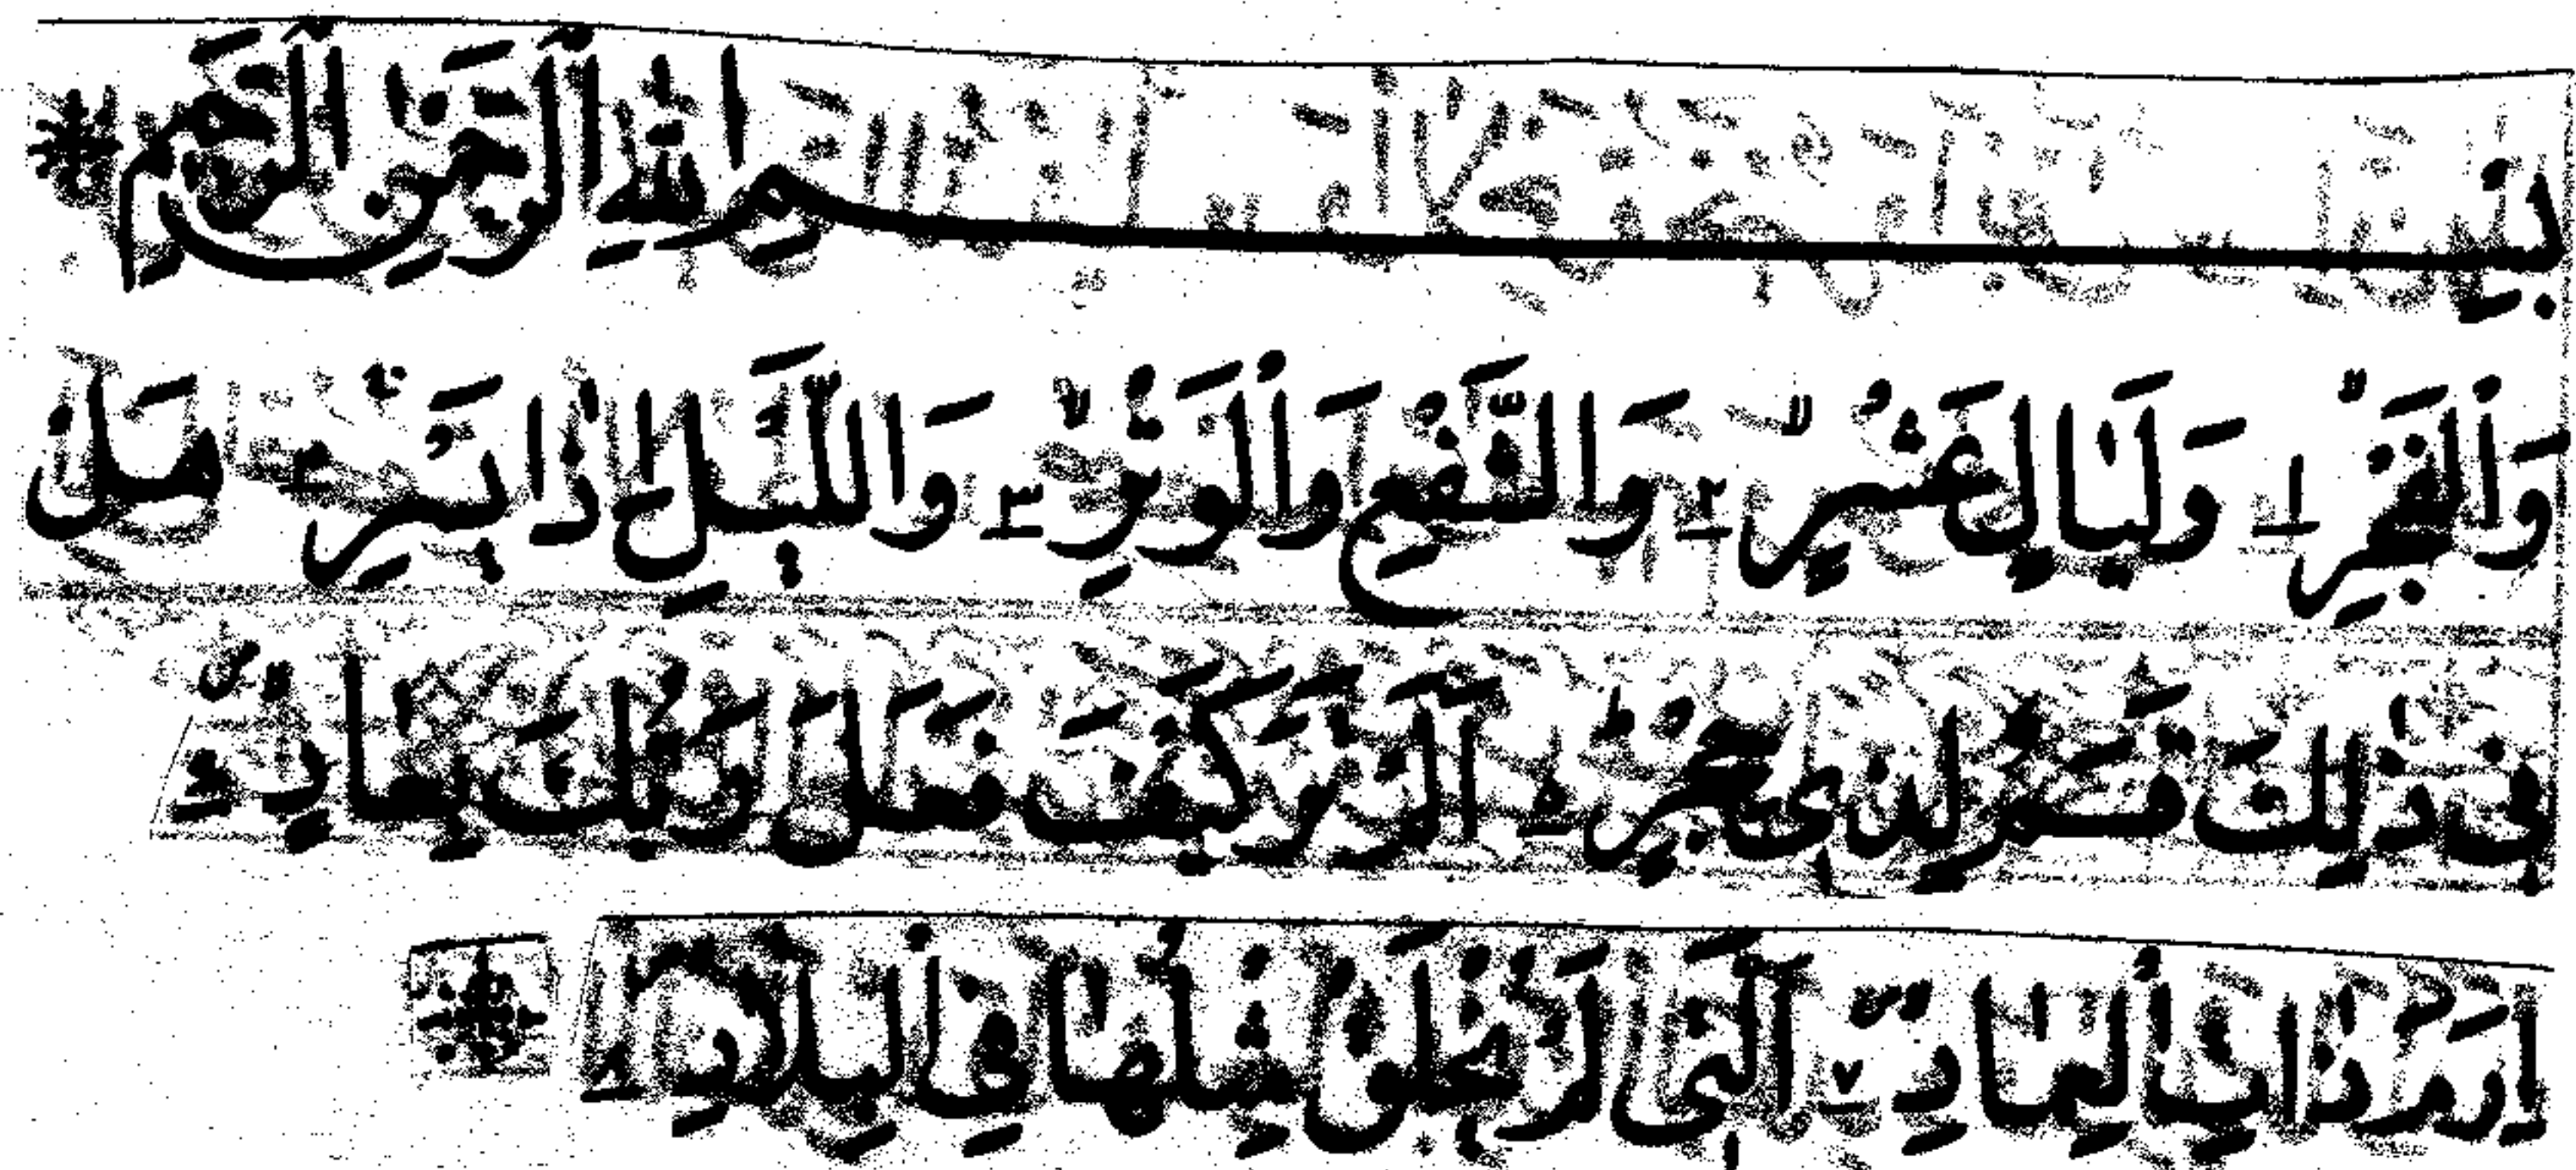 بِسْمِ اللّٰهِ ٱلرَّحْمٰنِ ٱلرَّحِيمِ
وَٱلْفَجْرِۙ ١ وَلَيَالٍ عَشْرٍۙ ٢ وَالشَّفْعِ وَٱلْوَتْرِۙ ٣ وَاللَّيْلِ إِذَا يَسْرِۚ ٤ هَلْ
فِى ذٰلِكَ قَسَمٌ لِذِى حِجْرٍۗ ٥ أَلَمْ تَرَ كَيْفَ فَعَلَ رَبُّكَ بِعَادٍۙ ٦
إِرَمَ ذَاتِ ٱلْعِمَادِۙ ٧ ٱلَّتِى لَمْ يُخْلَقْ مِثْلُهَا فِى ٱلْبِلَادِ ٨